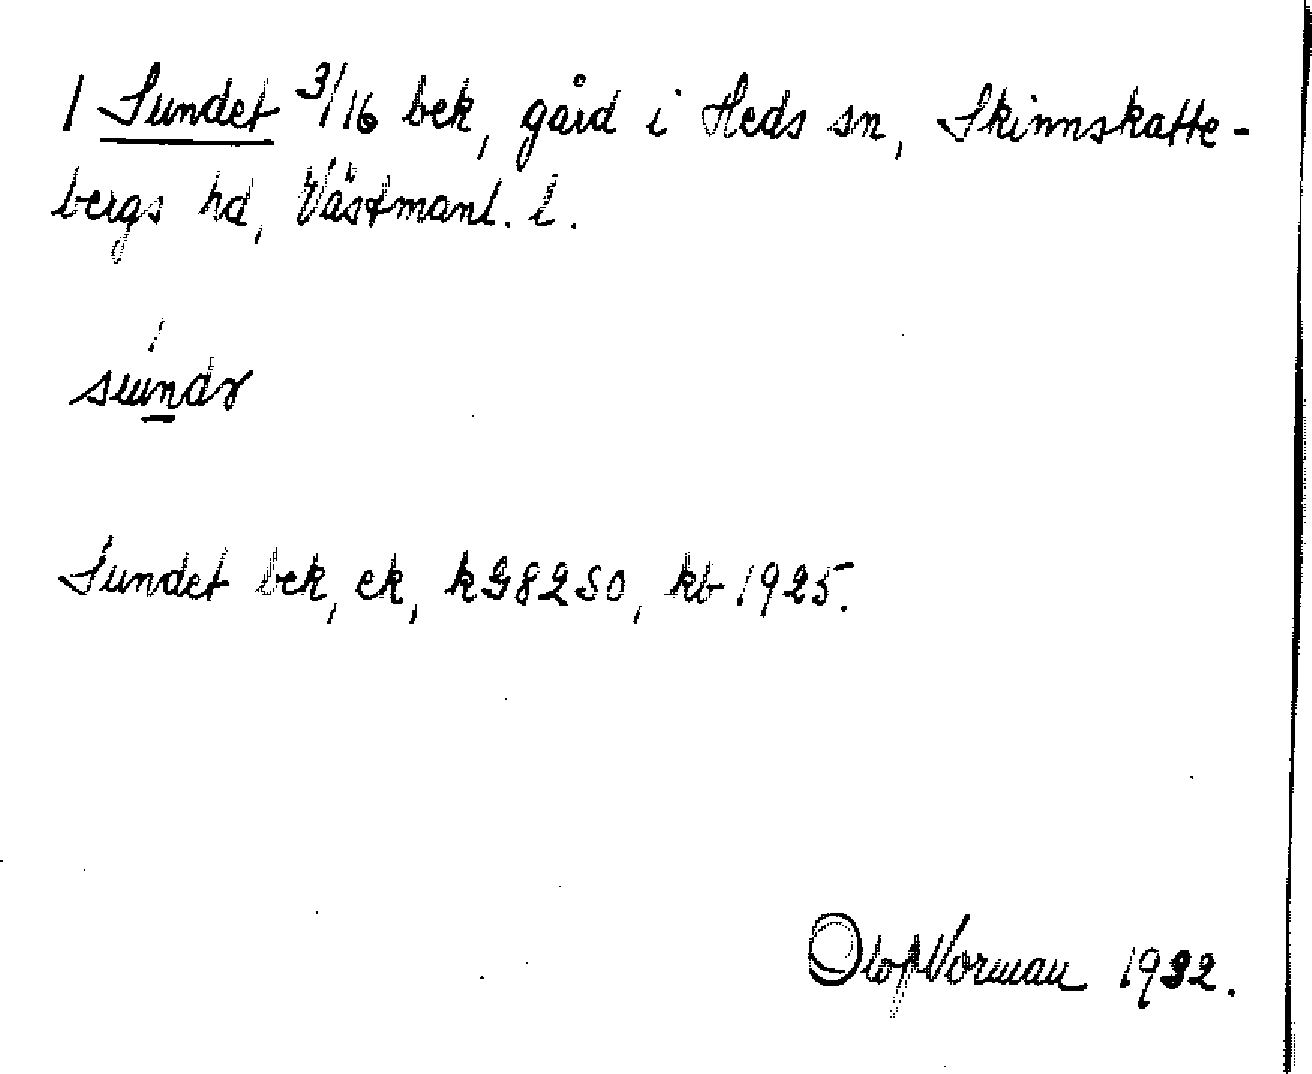 1 Sundet 3/16 bek, gård i Heds sn, Skinnskatte-
bergs hd, Västmanl. l.
Sundet bek, ek, kG8250, kb 1925.
Olof Norman 1932.